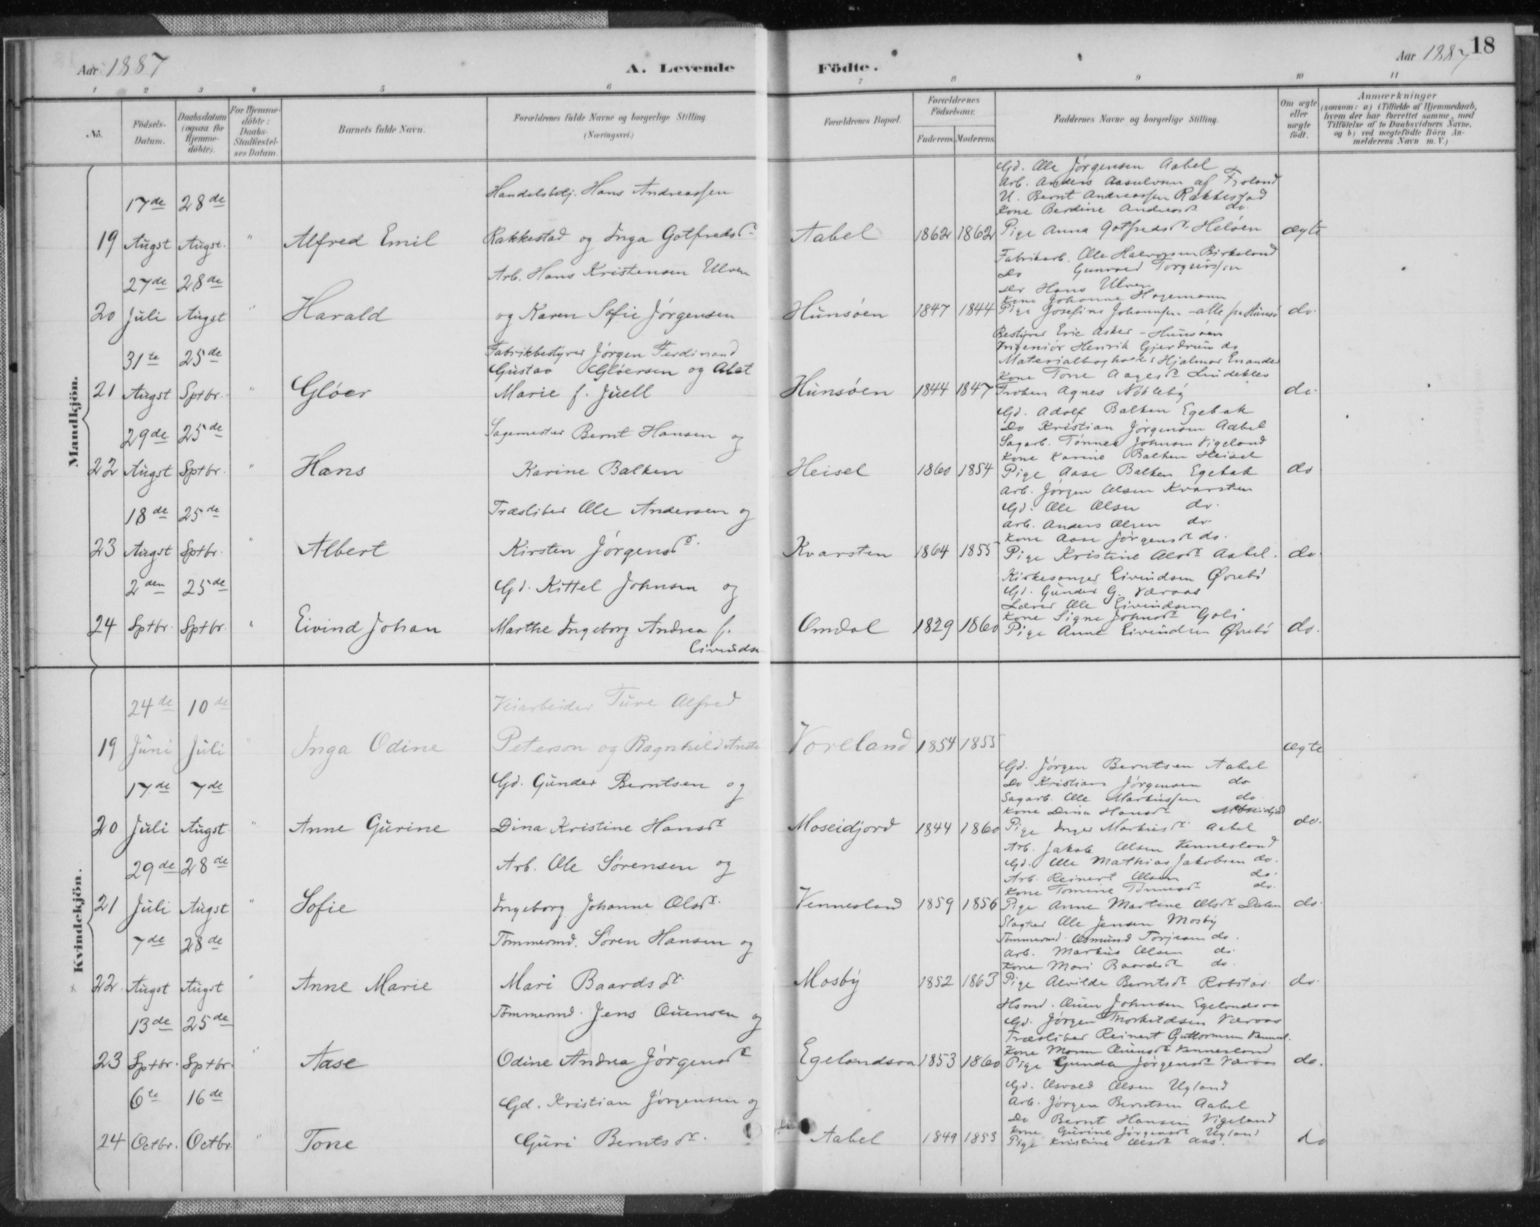 Aar 1887
A. Levende
Födte.
Aar 1887
18
1 2 3 4 5 6 7 8 9 10 11
No.
Födsels-Datum.
Daabsdatum (ogsaa for Hjemme-döbte).
For Hjemme-döbte: Daabs-Stadfæstel-ses Datum.
Barnets fulde Navn.
Forældrenes fulde Navne og borgerlige Stilling (Næringsvei.)
Forældrenes Bopæl.
Forældrenes Födselsaar.
Faderens. Moderens.
Faddernes Navne og borgerlige Stilling.
Om ægte eller uægte födt.
Anmærkninger
Mandkjön.
17de 28de
Handelsbetj. Hans Andreassen
Gd. Ole Jørgensen Aabel
U. Bernt Andreassen Rakkestad
19 Augst Augst. " Alfred Emil
Rakkestad og Inga Gotfredsd.
Aabel 1862 1862
Pige Anna Gotfredsd. Heløen
ægte
27de 28de
Arb. Hans Kristensen Ulven
Fabrikarb. Ole Halvorsen Birkeland
Do Gunvald Torgeirsson
Do Hans Ulven
Kone Johanne Hagemann
20 Juli Augst " Harald
og Karen Sofie Jørgensen
Hunsøen 1847 1844
do.
31te 25de
Fabrikbestyrer Jørgen Ferdinand
Gustav Gløersen og Alet
Bestyrer Eric Asker - Hunsøen
Ingeniør Henrik Gjerdrum do
21 Augst Sptbr. " Gløer
Marie f. Juell
Hunsøen 1844 1847
Frøken Agnes
do.
29de 25de
Sagmester Bernt Hansen og
Gd. Adolf Balken Egebak
Do Kristian Jørgensen Aabel
Sagarb. Tønnes Johnsen Vigeland
Kone Karine Balken Heisel
22 Augst Sptbr. " Hans
Karine Balken
Heisel 1860 1854
Pige Aase Balken Egebak
do
18de 25de
Træsliber Ole Andersen og
Arb. Jørgen Olsen Kvarsten
Gd. Ole Olsen do.
Arb. Anders Olsen do
Kone Aase Jørgensd. do.
23 Augst Sptbr. " Albert
Kirsten Jørgensd.
Kvarsten 1864 1855
Pige Kristine Olsd. Aabel.
do.
2den 25de
Gd. Kittel Johnsen og
Kirkesanger Eivindsen Øvrebø
Gd. Gunder G. Væraas
Lærer Ole Eivindsen
24 Sptbr. Sptbr. " Eivind Johan
Marthe Ingeborg Andrea f. Eivindsn
Omdal 1829 1860
Pige Anne Eivindsen Øvrebø
do.
Kvindekjön.
24de 10de
Veiarbeider Ture Alfred
19 Juni Juli " Inga Odine
Peterson og Ragnhild
Voreland 1854 1855
ægte
17de 7de
Gd. Gunder Berntsen og
Gd. Jørgen Berntsen Aabel
Do Kristian Jørgensen do
Sagarb. Ole Markussen do.
Kone Dina Hansd. Moseidjord
20 Juli Augst " Anne Gurine
Dina Kristine Hansd.
Moseidjord 1844 1860
Pige Inger Markusd. Aabel
do.
29de 28de
Arb. Ole Sørensen og
Arb. Jakob Olsen Vennesland
Gd. Ole Mathias Jakobsen do.
Arb. Reinert Olsen do.
Kone Tomine do.
21 Juli Augst " Sofie
Ingeborg Johanne Olsd.
Vennesland 1859 1856
Pige Anne Martine Olsd.
do.
7de 28de
Tømmermd. Søren Hansen og
Slagter Ole Jensen Mosby
Tømmermd. Osmund Torjesen do.
Arb. Markus Olsen do.
Kone Mari Baardsd. do.
22 Augst Augst " Anne Marie
Mari Baardsd.
Mosby 1852 1863
Pige Alvilde Berntsd. Robstad
do.
13de 25de
Tømmermd. Jens Ouensen og
Hsmd. Ouen Johnsen Egelandsaa
Gd. Jørgen Thorkildsen Væraas
Træsliber Reinert Guttormsen
23 Sptbr. Sptbr. " Aase
Odine Andrea Jørgensd.
Egelandsaa 1853 1860
Pige Gunda Jørgensd. Væraas
do.
6te 16de
Gd. Kristian Jørgensen og
Gd. Osvald Olsen Ugland
Arb. Jørgen Berntsen Aabel
Do Bernt Hansen Vigeland
Kone Gurine Jørgensd. Ugland
24 Octbr. Octbr. " Tone
Guri Berntsd.
Aabel 1849 1853
Pige Kristine Olsd. Aas.
do